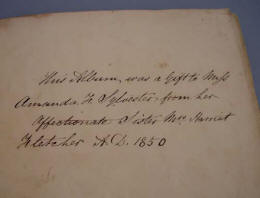 This Album, was a Gift to Miss
Amanda F Sylvester, from her
affectionate Sister Mrs Harriet
Fletcher A.D. 1850